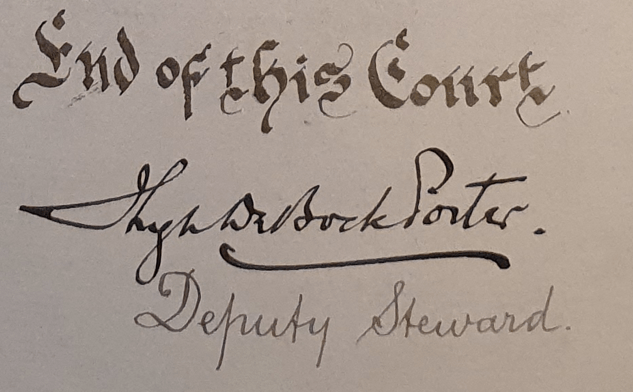 End of this Court
Hugh De Bock Porter.
Deputy Steward.